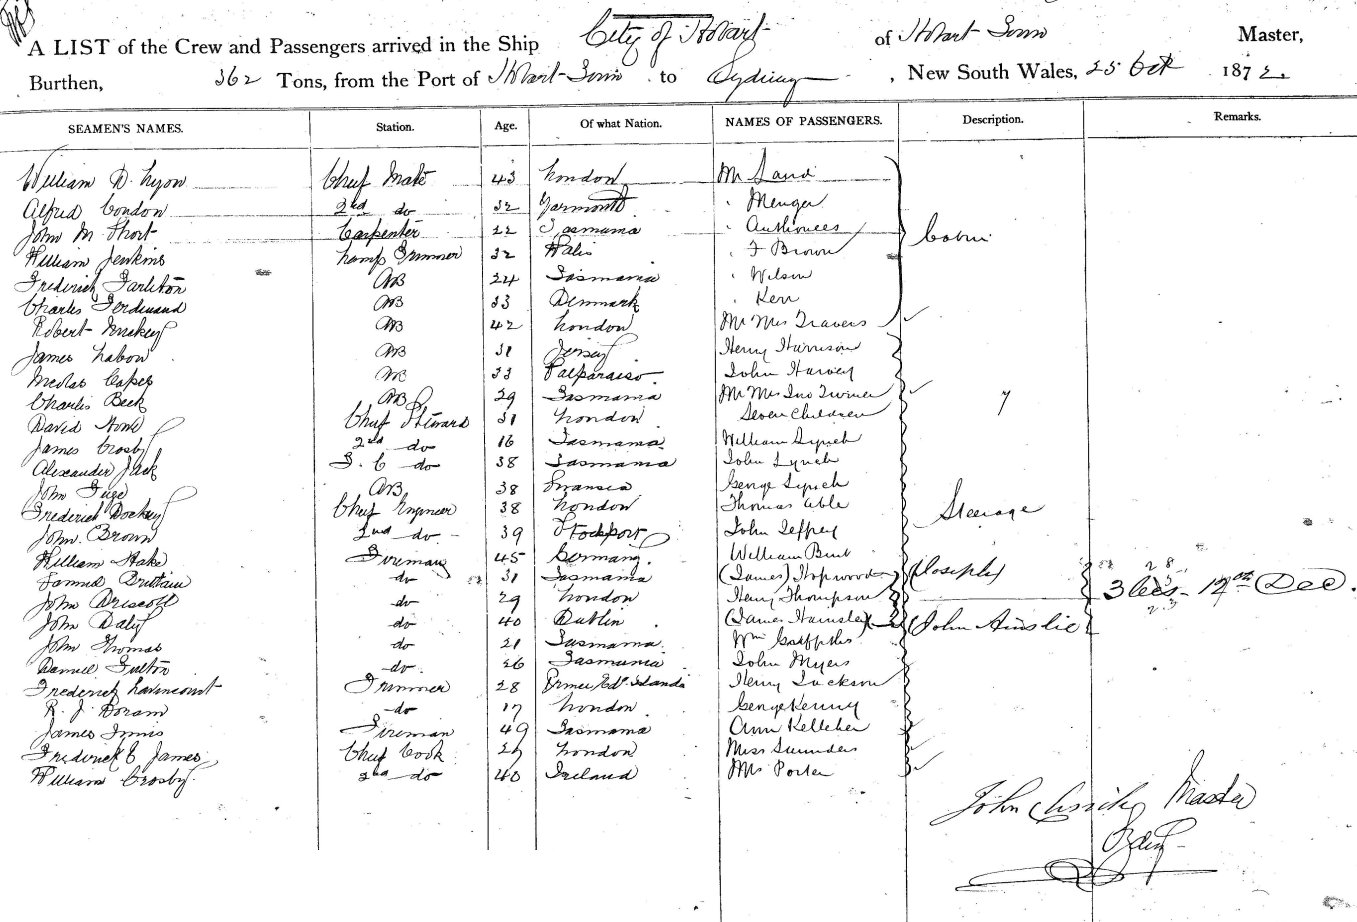 A LIST of the Crew and Passengers arrived in the Ship City of Hobart of Hobart Town Master,
Burthen, 362 Tons, from the Port of Hobart Town to Sydney, New South Wales, 25 Oct 1872.
SEAMEN'S NAMES. Station. Age. Of what Nation. NAMES OF PASSENGERS. Description. Remarks.
William D. Lyon Chief Mate 43 London Mr Land
Alfred Condon 2nd do 32 Yarmouth " Menger
John M Short Carpenter 22 Tasmania "
William Jenkins Lamp Trimmer 32 Wales " F Brown Cabin
Frederick Tarleton AB 24 Tasmania " Wilson
Charles Ferdinand AB 33 Denmark " Kerr
Robert AB 42 London Mr Mrs Travers
James Labon AB 31 Jersey Henry Harrison
AB 33 Valparaiso John Harvey
Charles Beck AB 29 Tasmania Mr Mrs Jno Turner 7
David Chief Steward 31 London Seven Children
James Crosby 2nd do 16 Tasmania William Lynch
Alexander Jack S. C do 38 Tasmania John Lynch
John AB 38 Swansea George Lynch
Frederick Chief Engineer 38 London Thomas Able Steerage
John Brown 2nd do 39 Stockport John Jeffrey
William Hake Fireman 45 Germany William
Samuel Brittain do 31 Tasmania (James) Hopwood (Joseph)
John Driscoll do 29 London Henry Thompson 3 12th Dec.
John Daly do 40 Dublin (James Hainsley) (John Ainslie
John Thomas do 21 Tasmania Wm Griffiths
Daniel Fulton do 26 Tasmania John Myers
Frederick Trimmer 28 Prince Ed. Islands Henry Jackson
R. J. Doram do 17 London George Kenny
James Innis Fireman 49 Tasmania Ann Kelleher
Frederick E James Chief Cook 29 London Miss Saunders
William Crosby 2nd do 40 Ireland Mrs Porter
John Master